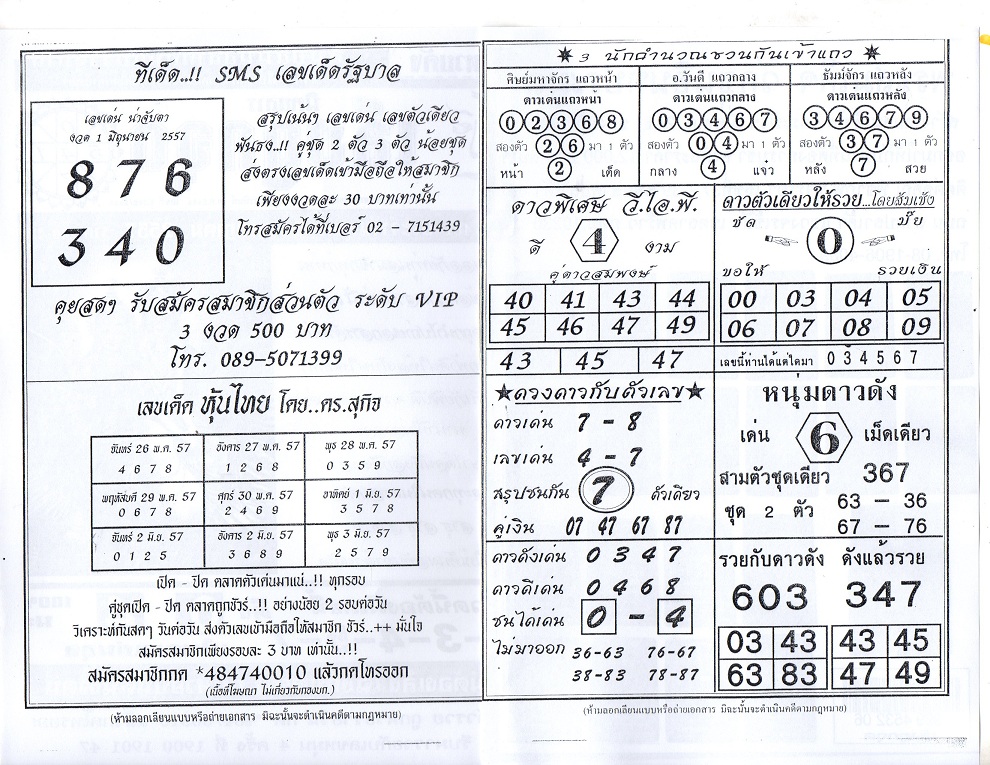 ทีเด็ด..!! SMS เลขเด็ดรัฐบาล
เลขเด่น น่าจับตา
งวด 1 มิถุนายน 2557
8 7 6
3 4 0
สรุปเน้นๆ เลขเด่น เลขตัวเดียว
ฟันธง..!! คู่ชุด 2 ตัว 3 ตัว น้อยชุด
ส่งตรงเลขเด็ดเข้ามือถือให้สมาชิก
เพียงงวดละ 30 บาทเท่านั้น
โทรสมัครได้ที่เบอร์ 02 - 7151439
คุยสดๆ รับสมัครสมาชิกส่วนตัว ระดับ VIP
3 งวด 500 บาท
โทร. 089-5071399
เลขเด็ด หุ้นไทย โดย..ดร.สุกิจ
จันทร์ 26 พ.ค. 57 อังคาร 27 พ.ค. 57 พุธ 28 พ.ค. 57
4 6 7 8 1 2 6 8 0 3 5 9
พฤหัสบดี 29 พ.ค. 57 ศุกร์ 30 พ.ค. 57 อาทิตย์ 1 มิ.ย. 57
0 6 7 8 2 4 6 9 3 5 7 8
จันทร์ 2 มิ.ย. 57 อังคาร 2 มิ.ย. 57 พุธ 3 มิ.ย. 57
0 1 2 5 3 6 8 9 2 5 7 9
เปิด - ปิด ตลาดตัวเด่นมาแน่..!! ทุกรอบ
คู่ชุดเปิด - ปิด ตลาดถูกชัวร์..!! อย่างน้อย 2 รอบต่อวัน
วิเคราะห์กันสดๆ วันต่อวัน ส่งตัวเลขเข้ามือถือให้สมาชิก ชัวร์..++ มั่นใจ
สมัครสมาชิกเพียงรอบละ 3 บาท เท่านั้น..!!
สมัครสมาชิกกด *484740010 แล้วกดโทรออก
(เนื้อที่โฆษณา ไม่เกี่ยวกับกองบก.)
(ห้ามลอกเลียนแบบหรือถ่ายเอกสาร มิฉะนั้นจะดำเนินคดีตามกฎหมาย)
3 นักคำนวณชวนกันเข้าแถว
ศิษย์มหาจักร แถวหน้า อ.วันดี แถวกลาง ธัมม์จักร แถวหลัง
ดาวเด่นแถวหน้า ดาวเด่นแถวกลาง ดาวเด่นแถวหลัง
0 2 3 6 8 0 3 4 6 7 3 4 6 7 9
สองตัว 2 6 มา 1 ตัว สองตัว 0 4 มา 1 ตัว สองตัว 3 7 มา 1 ตัว
หน้า 2 เด็ด กลาง 4 แจ๋ว หลัง 7 สวย
ดาวพิเศษ วี.ไอ.พี.
ดี 4 งาม
คู่ดาวสมพงษ์
40 41 43 44
45 46 47 49
43 45 47
ดาวตัวเดียวให้รวย...โดยส้มเช้ง
ชัด 0 ปั๊ย
ขอให้ รวยเงิน
00 03 04 05
06 07 08 09
เลขนี้ท่านได้แต่ใดมา 0 3 4 5 6 7
ดวงดาวกับตัวเลข
ดาวเด่น 7 - 8
เลขเด่น 4 - 7
สรุปชนกัน 7 ตัวเดียว
คู่เงิน 07 47 67 87
ดาวดังเด่น 0 3 4 7
ดาวดีเด่น 0 4 6 8
ชนได้เด่น 0 - 4
ไม่มาออก 36-63 76-67
38-83 78-87
หนุ่มดาวดัง
เด่น 6 เม็ดเดียว
สามตัวชุดเดียว 367
ชุด 2 ตัว 63 - 36
67 - 76
รวยกับดาวดัง ดังแล้วรวย
603 347
03 43 43 45
63 83 47 49
(ห้ามลอกเลียนแบบหรือถ่ายเอกสาร มิฉะนั้นจะดำเนินคดีตามกฎหมาย)